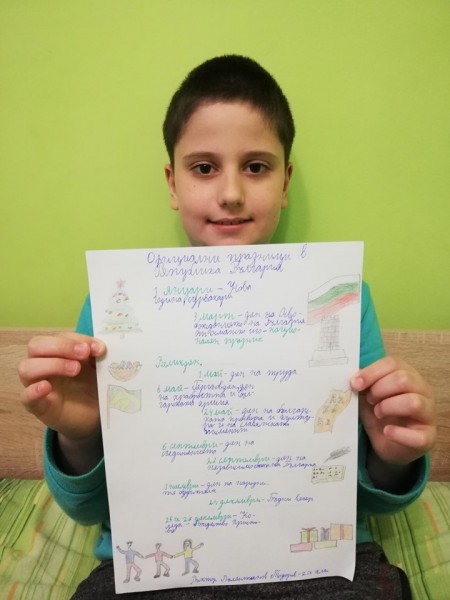 Официални празници в
Република България
1 януари – Нова
година, Сурвакари
3 март – ден на Осво-
бождението на България
от османско иго – национ
ален празник
Великден
1 май – ден на труда
6 май – Гергьовден, ден
на храбростта и бъл-
гарската армия
24 май – ден на българс-
ката просвета и култу
ра и на славянската
писменост
6 септември – ден на
съединението
22 септември – ден на
независимостта България
1 ноември – ден на народни-
те будители
24 декември – Бъдни вечер
25 и 26 декември – Ко-
леда – Рождество Христо-
во